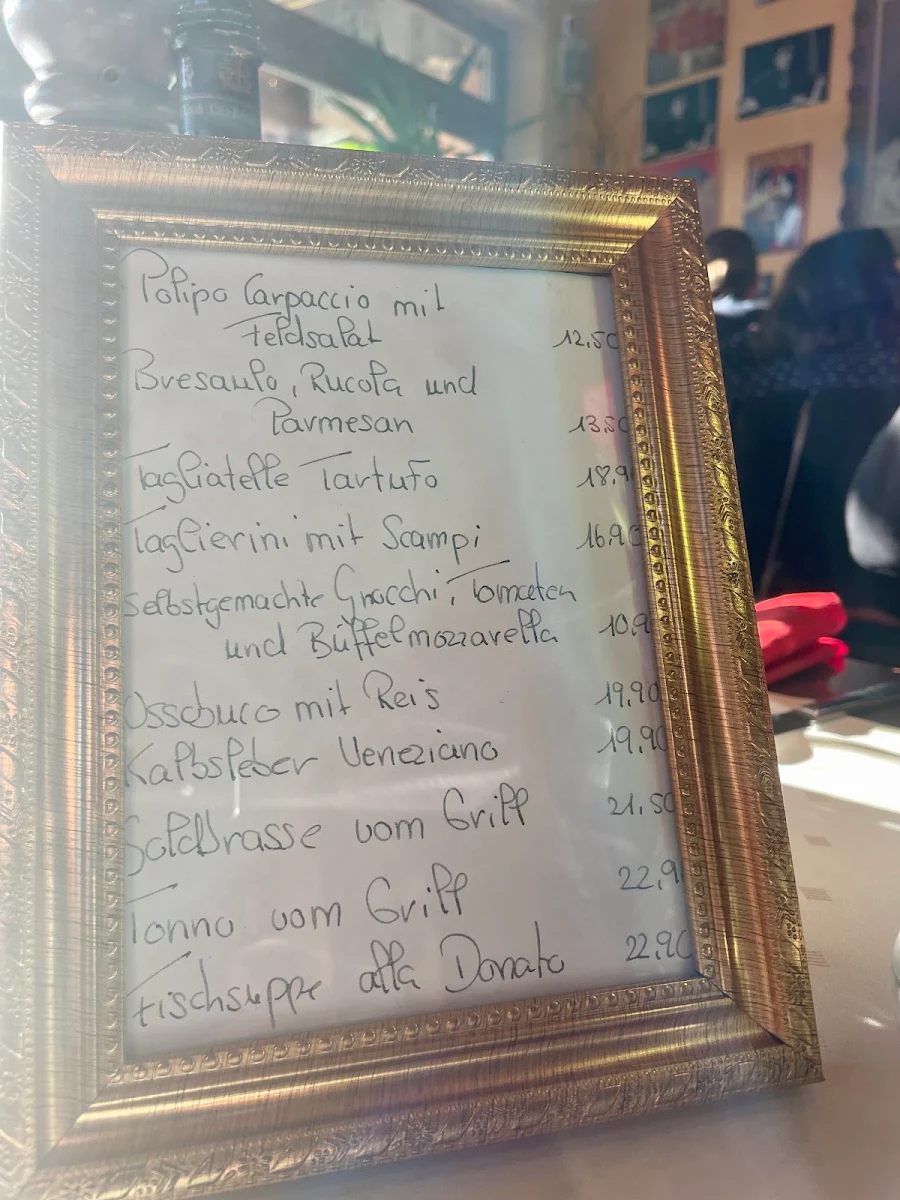 Polipo Carpaccio mit
Feldsalat 12,50
Bresaulo, Rucola und
Parmesan 13,50
Tagliatelle Tartufo 18,9
Taglierini mit Scampi 16,90
selbstgemachte Gnocchi, Tomaten
und Büffelmozzarella 10,9
Ossobuco mit Reis 19,90
Kalbsleber Veneziano 19,90
Goldbrasse vom Grill 21,50
Tonno vom Grill 22,9
Fischsuppe alla Donato 22,90